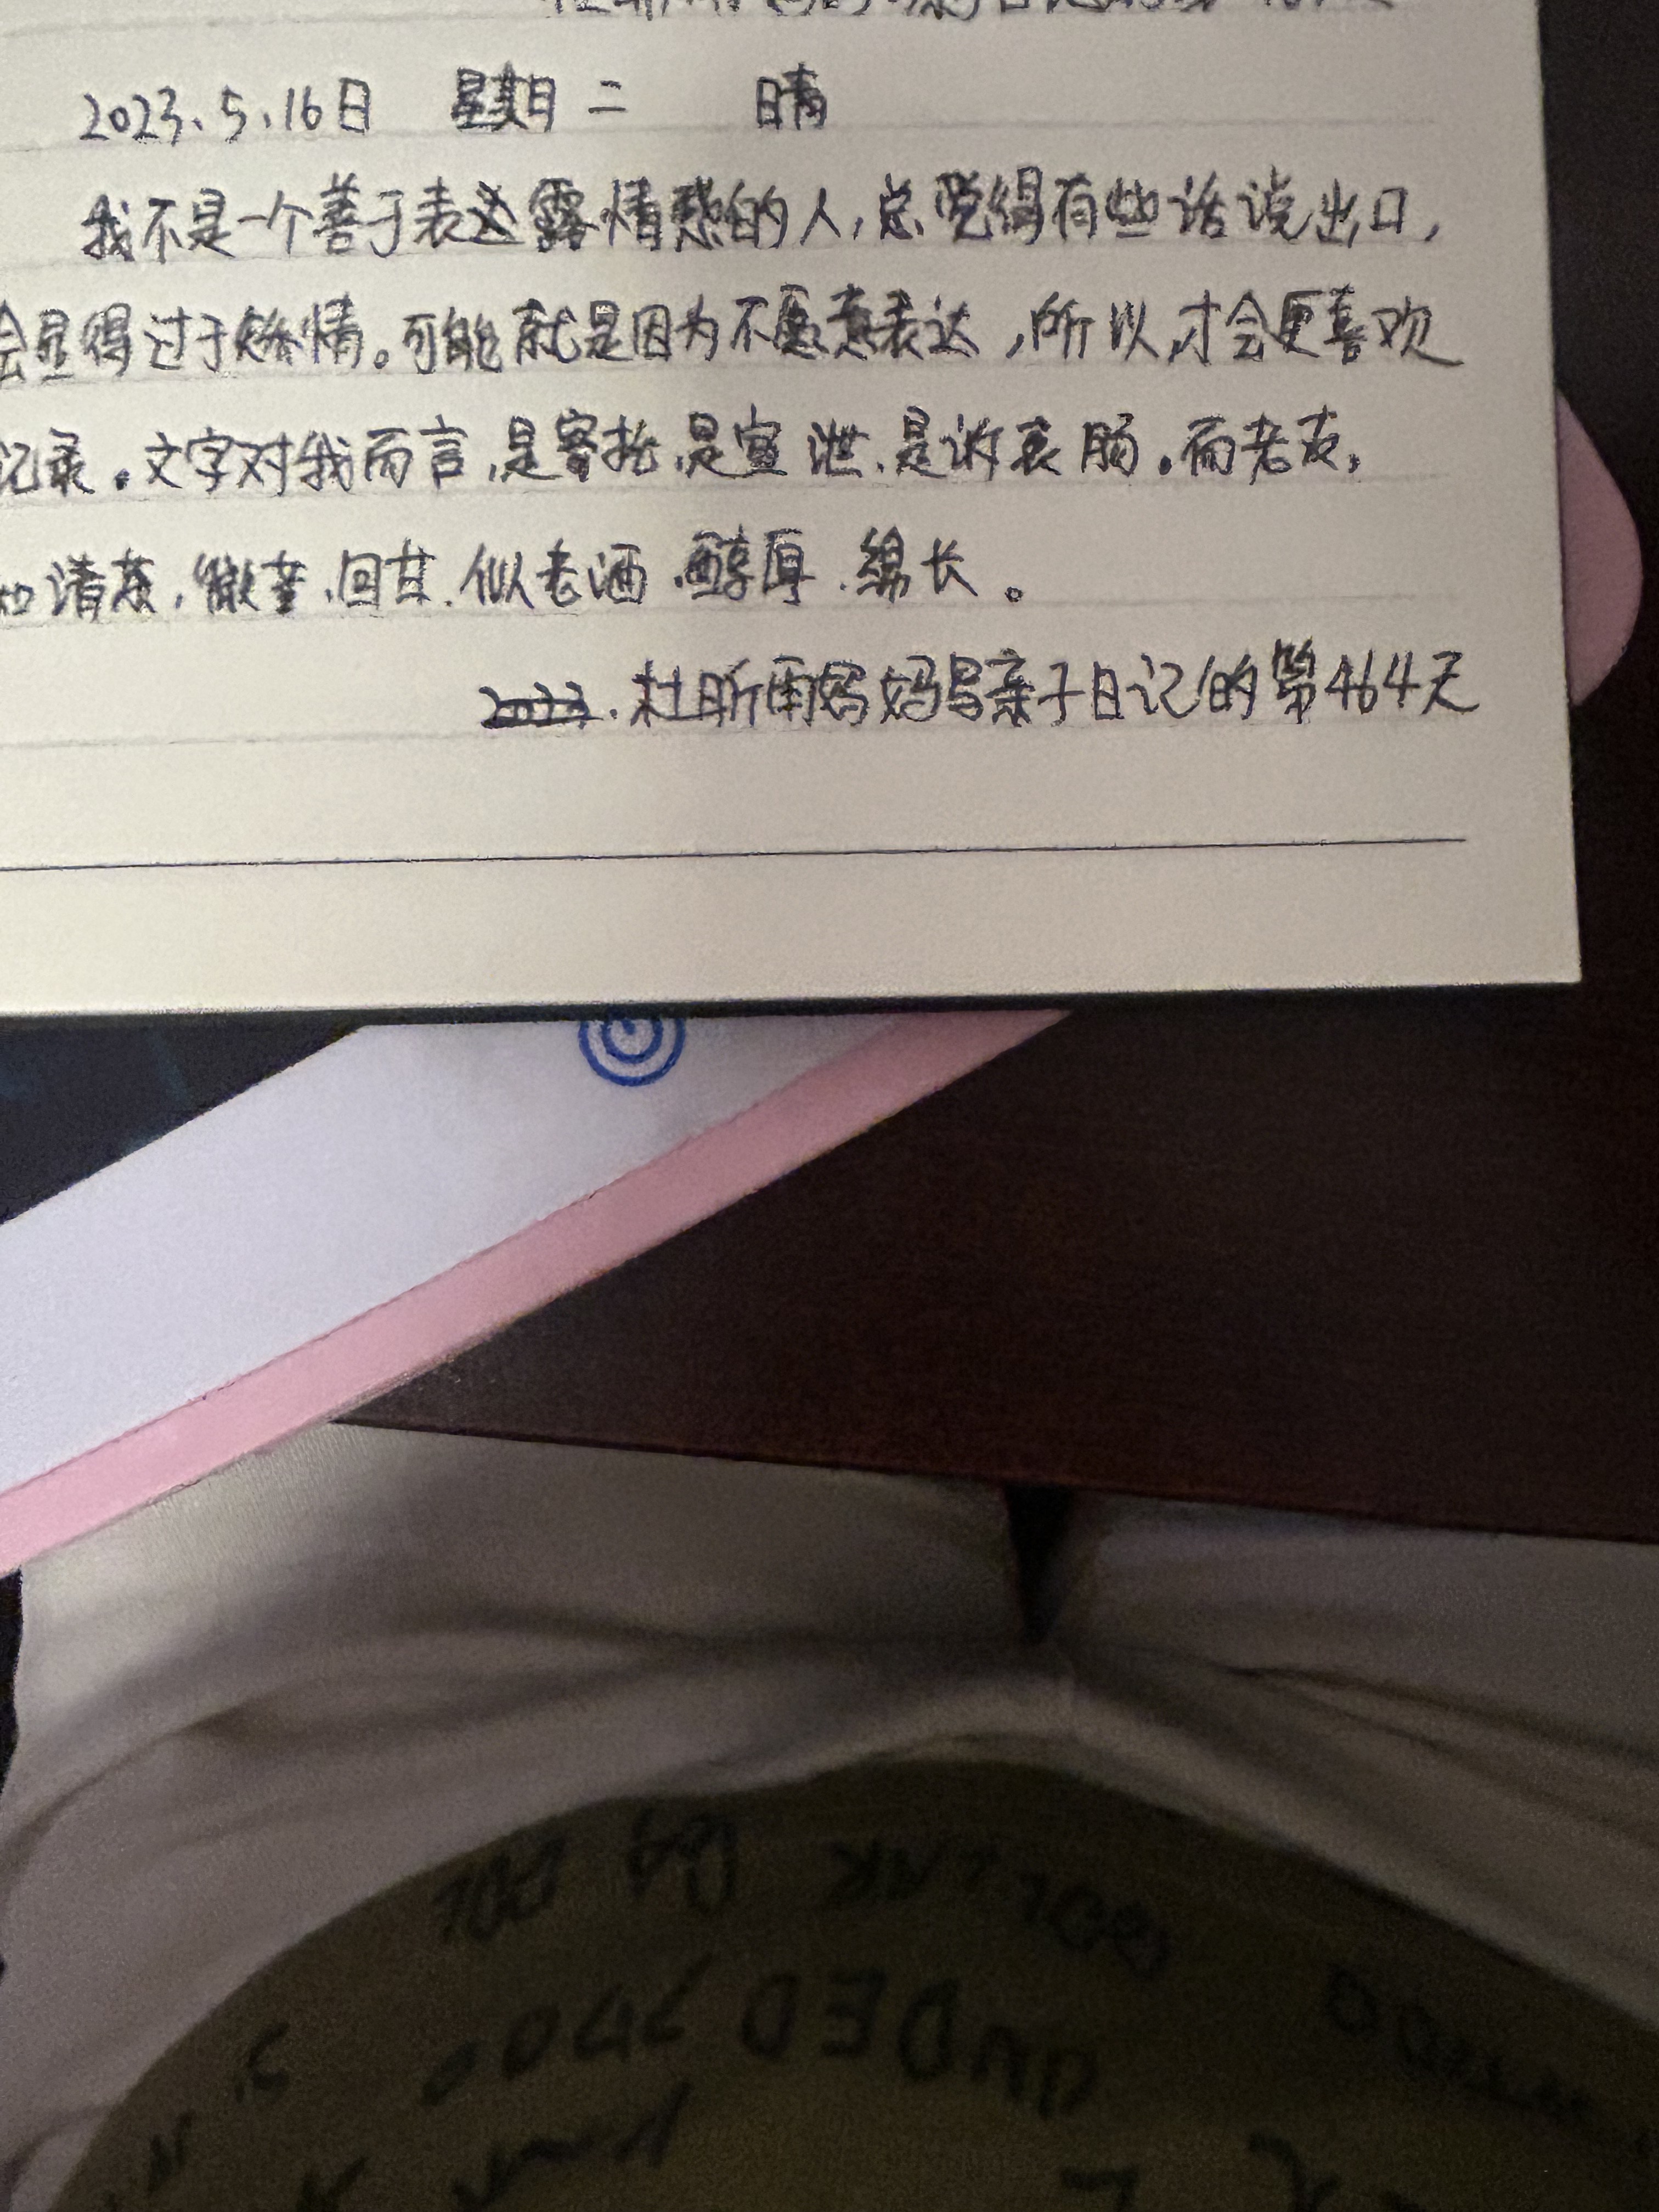 2023.5.16日 星期二 晴
我不是一个善于表达露情感的人,总觉得有些话说出口,
会显得过于矫情。可能就是因为不愿意表达,所以才会更喜欢
记录。文字对我而言,是寄托,是宣泄,是诉衷肠。而老友,
如清茶,微苦,回甘.似老酒.醇厚.绵长。
杜昕雨妈妈写亲子日记的第464天